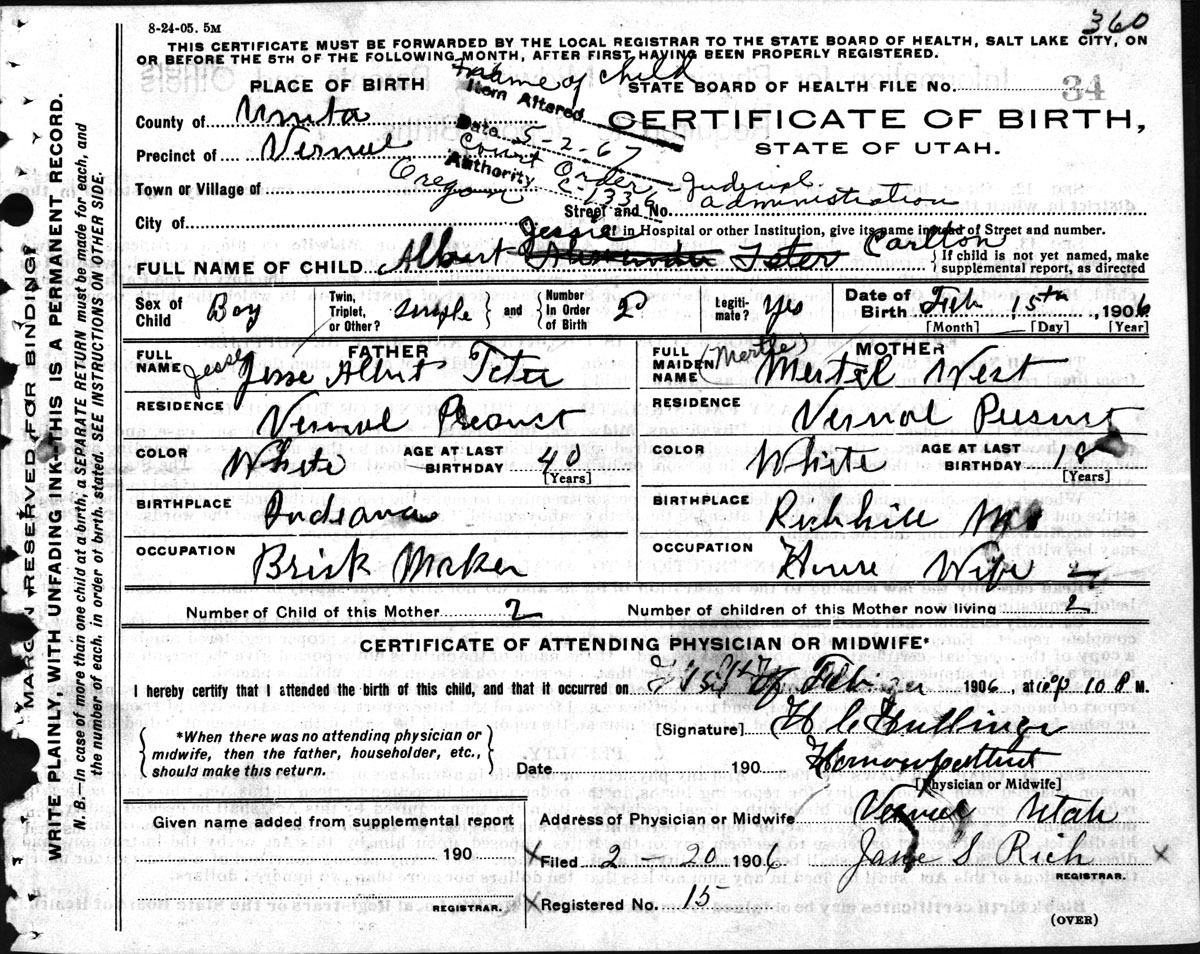 8-24-05. 5M
360
THIS CERTIFICATE MUST BE FORWARDED BY THE LOCAL REGISTRAR TO THE STATE BOARD OF HEALTH, SALT LAKE CITY, ON
OR BEFORE THE 5TH OF THE FOLLOWING MONTH, AFTER FIRST HAVING BEEN PROPERLY REGISTERED.
name of child
PLACE OF BIRTH
Item Altered
STATE BOARD OF HEALTH FILE No. 34
County of
Date 5-2-67
CERTIFICATE OF BIRTH,
Precinct of Vernal
Court Order
STATE OF UTAH.
Authority C-1336
Town or Village of Oregon
Judicial administration
Street and No.
City of
If in Hospital or other Institution, give its name instead of Street and number.
Jessie
FULL NAME OF CHILD Albert Teter Carlton
If child is not yet named, make
supplemental report, as directed
Sex of Child Boy
Twin, Triplet, or Other? single and Number In Order of Birth 2
Legitimate? Yes
Date of Birth Feb 15th 1906
[Month] [Day] [Year]
FATHER
MOTHER
FULL NAME Jesse Albert Teter
FULL MAIDEN NAME (Mertle) Mertel West
RESIDENCE Vernal
RESIDENCE Vernal
COLOR White AGE AT LAST BIRTHDAY 40 [Years]
COLOR White AGE AT LAST BIRTHDAY [Years]
BIRTHPLACE Indeana
BIRTHPLACE Richhill Mo
OCCUPATION Brick Maker
OCCUPATION House Wife
Number of Child of this Mother 2
Number of children of this Mother now living 2
CERTIFICATE OF ATTENDING PHYSICIAN OR MIDWIFE*
I hereby certify that I attended the birth of this child, and that it occurred on 15th of 1906, at 10 P M.
[Signature] H C Hullinger
*When there was no attending physician or
midwife, then the father, householder, etc.,
should make this return.
Date 190
[Physician or Midwife]
Given name added from supplemental report
Address of Physician or Midwife Vernal Utah
190
X Filed 2 20 1906 Jane S Rich
REGISTRAR.
REGISTRAR.
X Registered No. 15
(OVER)
MARGIN RESERVED FOR BINDING.
WRITE PLAINLY, WITH UNFADING INK—THIS IS A PERMANENT RECORD.
N. B.—In case of more than one child at a birth, a SEPARATE RETURN must be made for each, and
the number of each, in order of birth, stated. SEE INSTRUCTIONS ON OTHER SIDE.